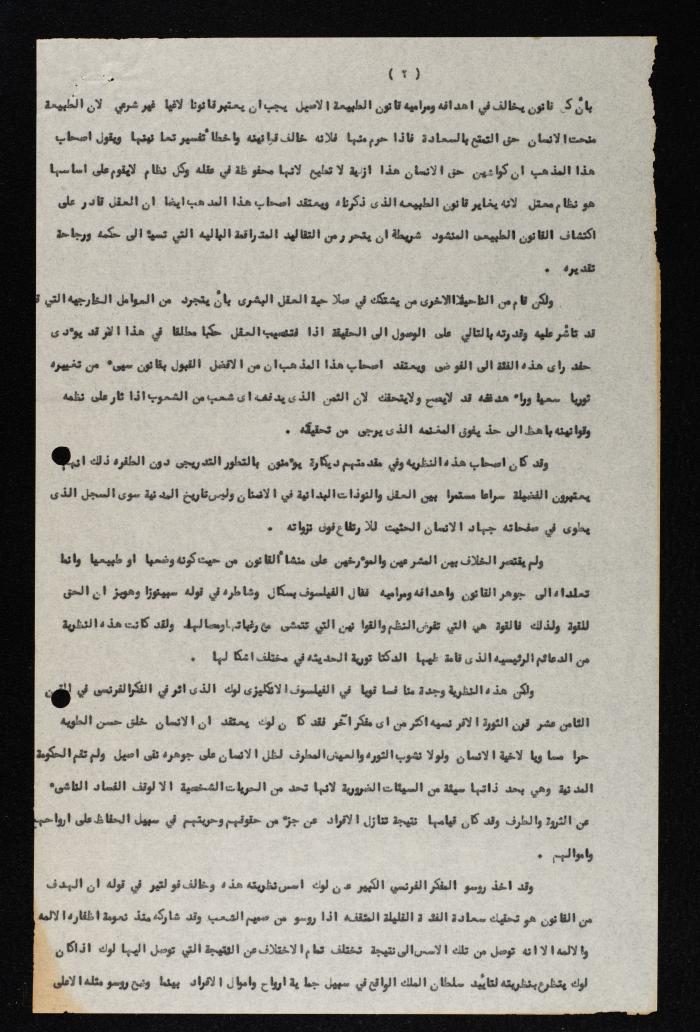 ( ٢ )
بأن كـ قانون يخالف في اهدافه ومراميه قانون الطبيعة الاصيل يجب ان يعتبر قانونا لاغيا غير شرعي لان الطبيعة
منحت الانسان حق التمتع بالسعادة فاذا حرم منها فلانه خالف قوانينه واخطأ تفسير تعا نيها ويقول اصحاب
هذا المذهب ان كواشين حق الانسان هذا ازلية لا تطيع لانها محفوظة في عقله وكل نظام لايقوم على اساسها
هو نظام معتل لانه يغاير قانون الطبيعه الذى ذكرناه ويعتقد اصحاب هذا المدهب ايضا ان العقل قادر على
اكتشاف القانون الطبيعى المنشود شريطة ان يتحرر من التقاليد المتراقمة الباليه التي تسيء الى حكمه ورجاحة
تقديره .
ولكن قام من الناحيةالاخرى من يشتكك في صلاحية العقل البشرى بأن يتجرد من العوامل الخارجيه التي
قد تاشر عليه وقدرته بالتالي على الوصول الى الحقيقة اذا فتنصيب العقل حكما مطلقا في هذا الامر قد يوءدى
حفد راى هذه الفئة الى الفوضى ويعتقد اصحاب هذا المذهب ان من الافضل القبول بقانون سيىء من تغييره
ثوريا سعيا وراء هدفقه قد لايصح ولايتحقك لان الثمن الذى يدفعه اى شعب من الشعوب اذا ثار على نظمه
وقوانينه باهظ الى حذ يفوق المغنمه الذى يرجى من تحقيكه .
وقد كان اصحاب هذه النظريه وفي مقدمتهم ديكارة يوءمنون بالتطور التدريجى دون الطفره ذلك انهم
يعتبرون الفضيلة سراعا مستمرا بين العقل والنوذات البدائية في الانسان وليس تاريخ المدنية سوى السجل الذى
يطوى في صفحاته جهاد الانسان الحثيت للارتفاع فوق نزواته .
ولم يقتصر الخلاف بين المشرعين والموءرخين على منشأ القانون من حيث كونه وضعيا او طبيعيا وانما
تعداه الى جوهر القانون واهدافه ومراميه فقال الفيلسوف بسكال وشاطره في قوله سبينوزا وهوبز ان الحق
للقوة ولذلك فالقوة هي التي تفرض النظم والقوانين التي تتمشى مع رغباتها ومصالحها ولقد كانت هذه النظرية
من الدعائم الرئيسيه الذى قامة عليها الدكتاتورية الحديثه في مختلف اشكالها .
ولكن هذه النظرية وجدة منافسا قويا في الفيلسوف الانكليزى لوك الذى اثر في الفكر الفرنسى في القرن
الثامن عشر قرن الثورة الافرنسيه اكثر من اى مفكر آخر فقد كان لوك يعتقد ان الانسان خلق حسن الطويه
حرا مساويا لاخية الانسان ولولا نشوب الثوره والعيض المطرف لظل الانسان على جوهره نقى اصيل ولم تقم الحكومة
المدنية وهي بحد ذاتها سيئة من السيئات الضرورية لانها تحد من الحريات الشخصية الا لوقف الفساد الناشىء
عن الثروة والطرف وقد كان قيامها نتيجة تنازل الافراد عن جزء من حقوقهم وحريتهم في سبيل الحفاظ على ارواحهم
واموالهم .
وقد اخذ روسو المفكر الفرنسي الكبير عن لوك اسس نظريته هذه وخالف فولتير في قوله ان الهدف
من القانون هو تحقيك سعادة الفئة القليلة المثقفه اذا روسو من صميم الشعب وقد شاركه منذ نعومة اظفاره الامه
والامه الا انه توصل من تلك الاسس الى نتيجة تختلف تمام الاختلاف عن النتيجة التي توصل اليها لوك اذا كان
لوك يتظرع بنظريته لتاييد سلطان الملك الواقع في سبيل حماية ارواح واموال الافراد بينما وضع روسو مثله الاعلى